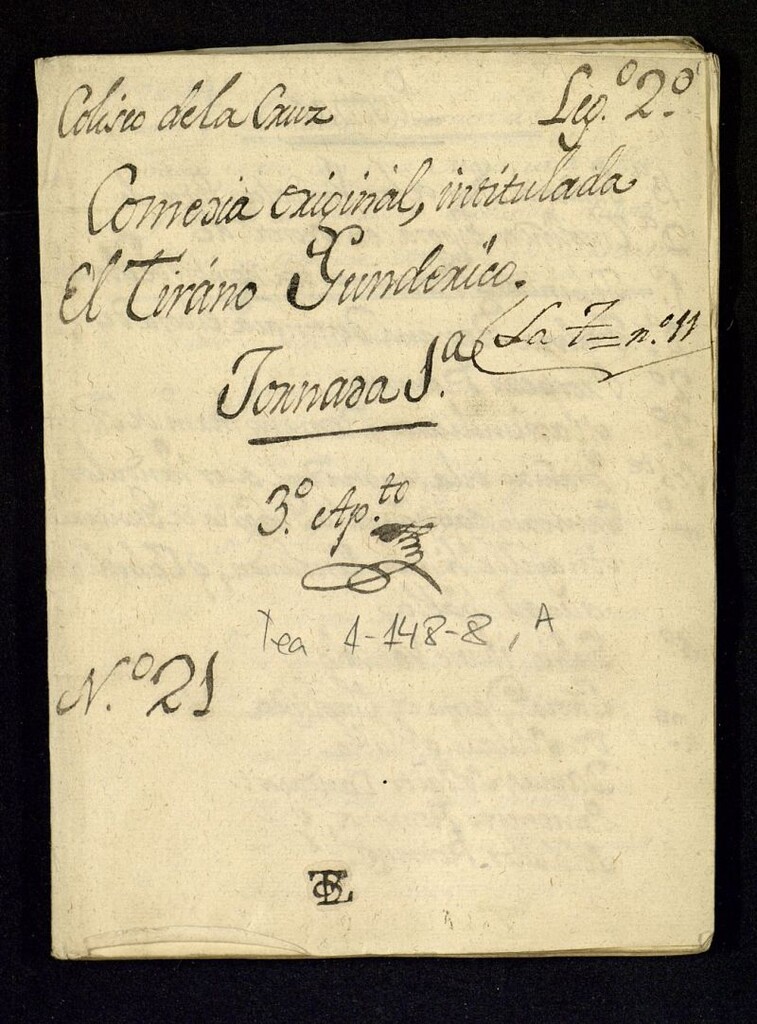 Coliseo de la Cruz
Leg.º 2.º
Comedia original, intitulada
El Tiráno Gunderico.
La 7= n.º 11
Jornada 1.ª
3.º Ap.to
Tea 1-148-8, A
N.º 21